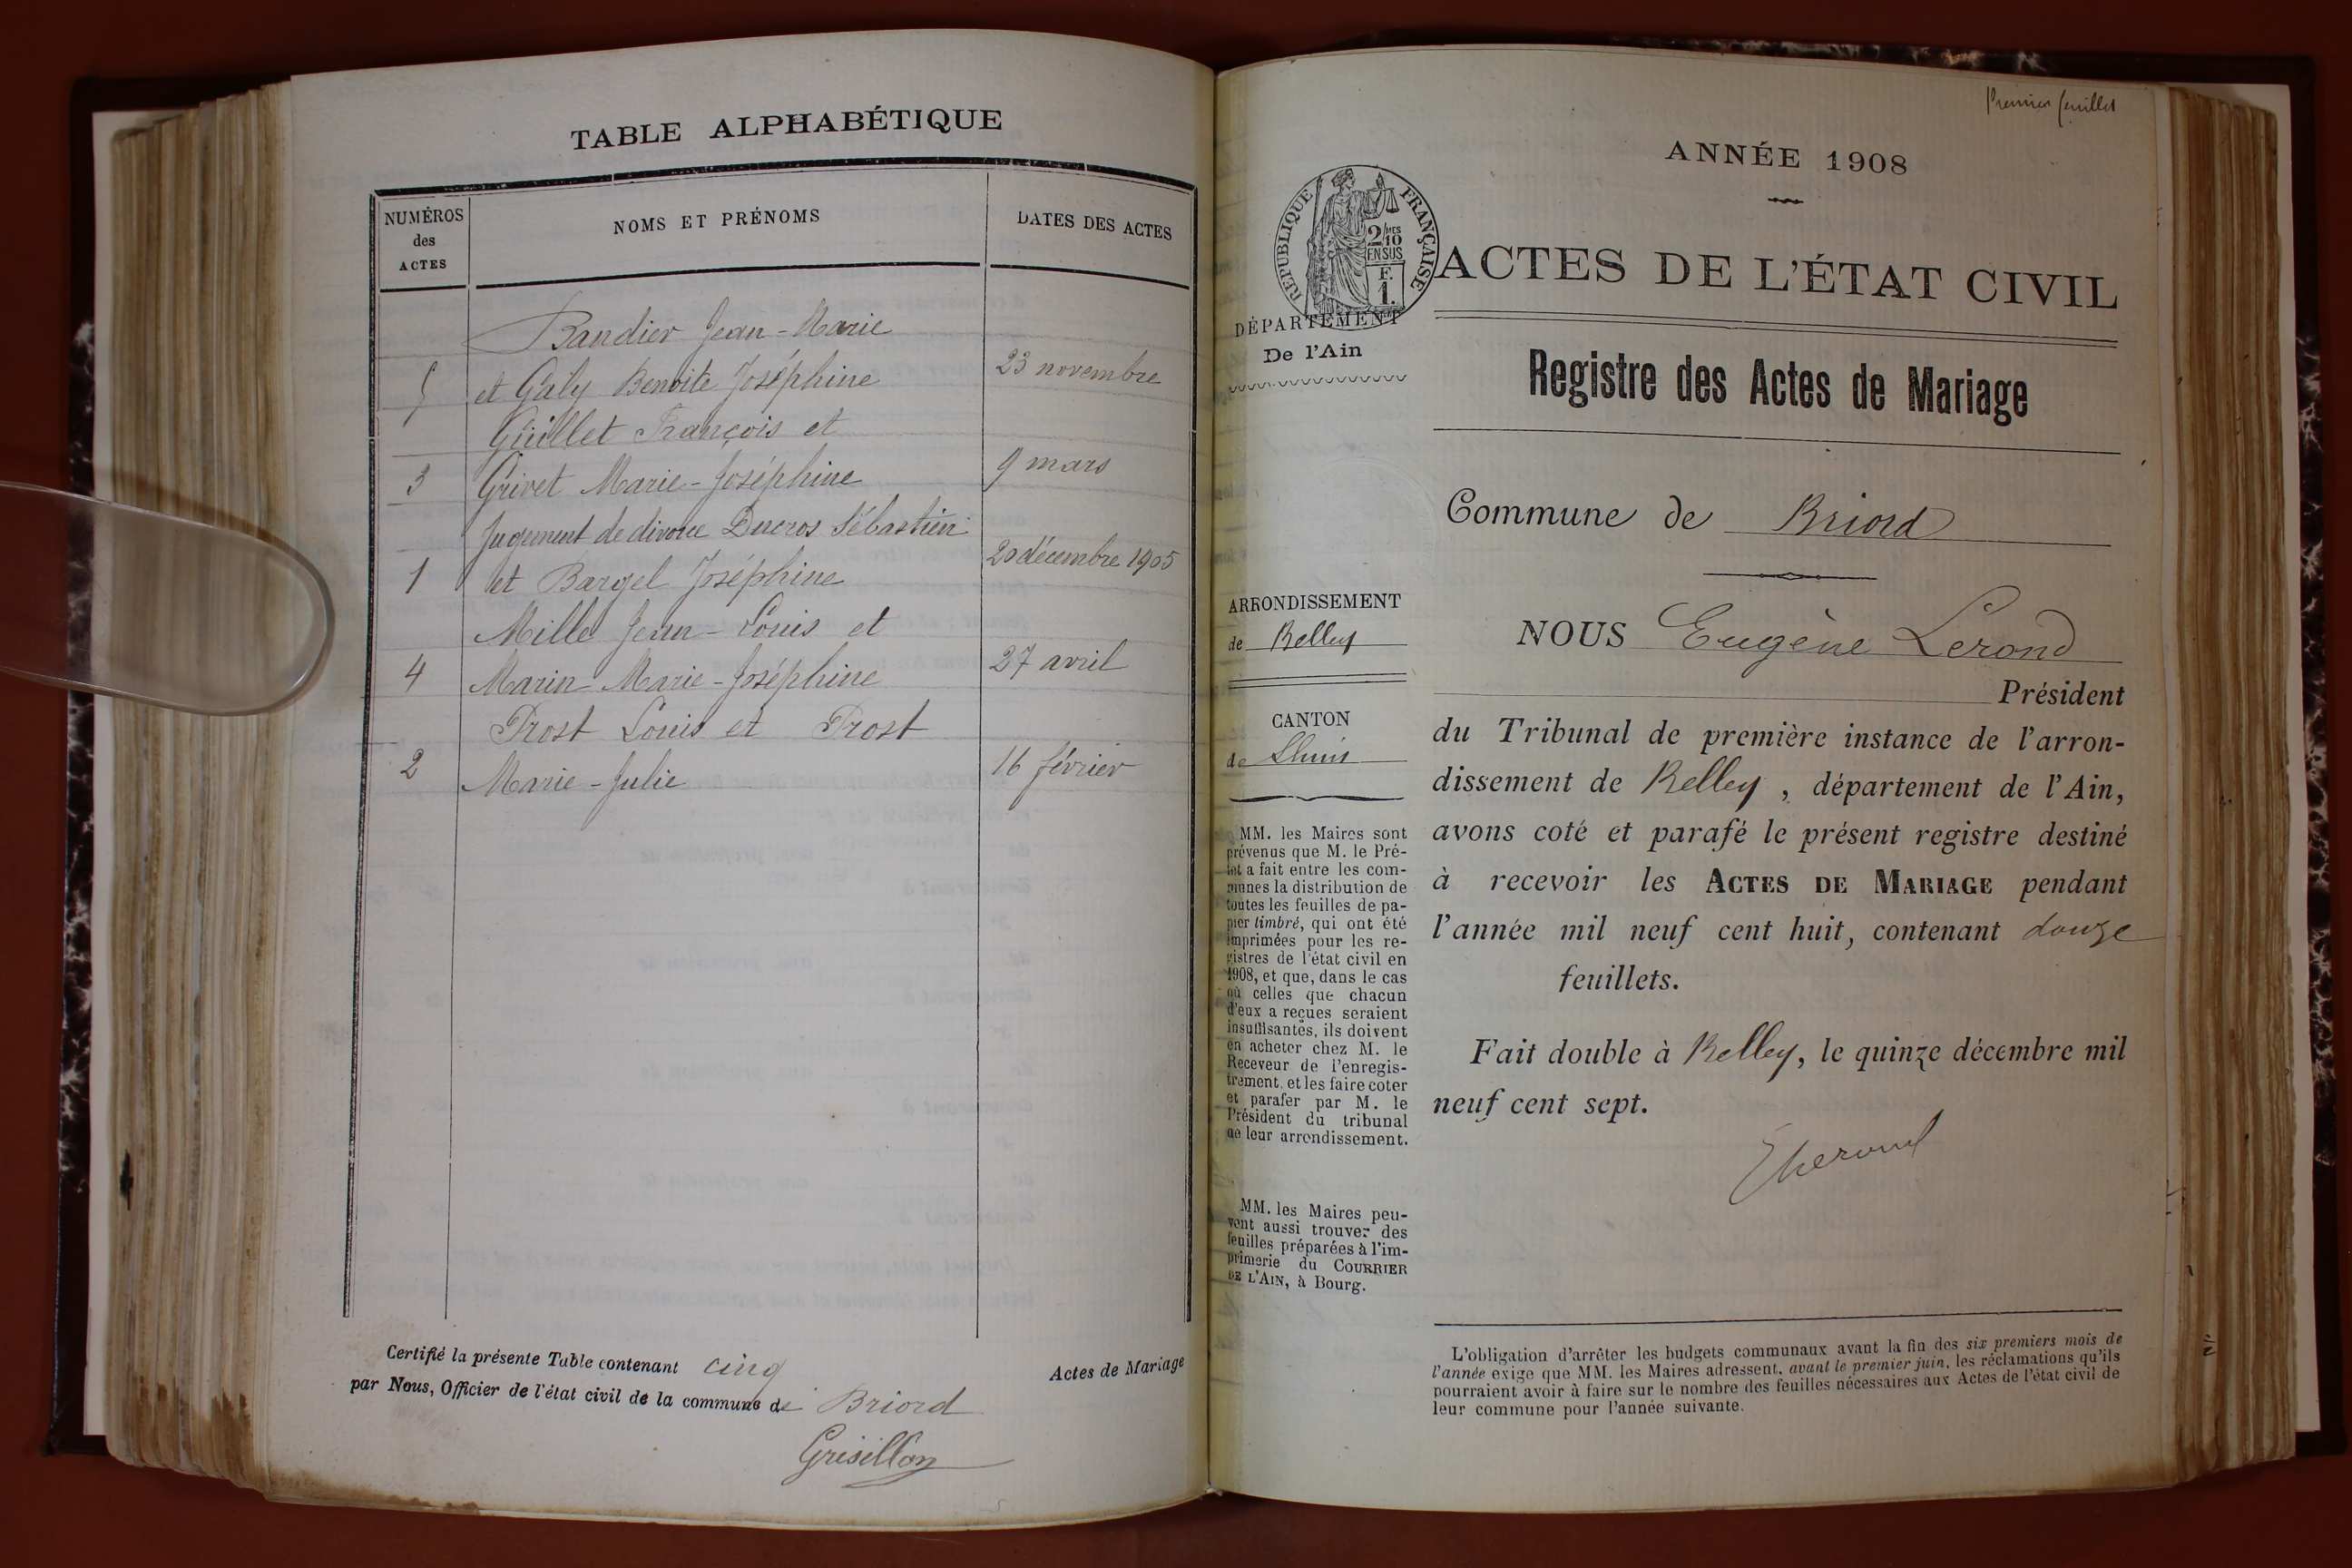 TABLE ALPHABÉTIQUE
NUMÉROS des ACTES
NOMS ET PRÉNOMS
DATES DES ACTES
Bandier Jean-Marie
5 et Galy Benoite Joséphine 23 novembre
Guillet François et
3 Grivet Marie-Joséphine 9 mars
Jugement de divorce Ducros Sébastien
1 et Bargel Joséphine 20 décembre 1905
Mille Jean-Louis et
4 Marin Marie-Joséphine 27 avril
Trost Louis et Trost
2 Marie-Julie 16 février
Certifié la présente Table contenant cinq Actes de Mariage
par Nous, Officier de l'état civil de la commune de Briord
Grisillon
Premier feuillet
ANNÉE 1908
RÉPUBLIQUE FRANÇAISE
2/10 MES
EN SUS
F.
1.
ACTES DE L'ÉTAT CIVIL
DÉPARTEMENT
De l'Ain
Registre des Actes de Mariage
Commune de Briord
ARRONDISSEMENT
de Belley
CANTON
de Lhuis
MM. les Maires sont
prévenus que M. le Pré-
fet a fait entre les com-
munes la distribution de
toutes les feuilles de pa-
pier timbré, qui ont été
imprimées pour les re-
gistres de l'état civil en
1908, et que, dans le cas
où celles que chacun
d'eux a reçues seraient
insuffisantes, ils doivent
en acheter chez M. le
Receveur de l'enregis-
trement, et les faire coter
et parafer par M. le
Président du tribunal
de leur arrondissement.
MM. les Maires peu-
vent aussi trouver des
feuilles préparées à l'im-
primerie du COURRIER
DE L'AIN, à Bourg.
NOUS Eugène Lerond
Président
du Tribunal de première instance de l'arron-
dissement de Belley, département de l'Ain,
avons coté et parafé le présent registre destiné
à recevoir les ACTES DE MARIAGE pendant
l'année mil neuf cent huit, contenant douze
feuillets.
Fait double à Belley, le quinze décembre mil
neuf cent sept.
L'obligation d'arrêter les budgets communaux avant la fin des six premiers mois de
l'année exige que MM. les Maires adressent, avant le premier juin, les réclamations qu'ils
pourraient avoir à faire sur le nombre des feuilles nécessaires aux Actes de l'état civil de
leur commune pour l'année suivante.